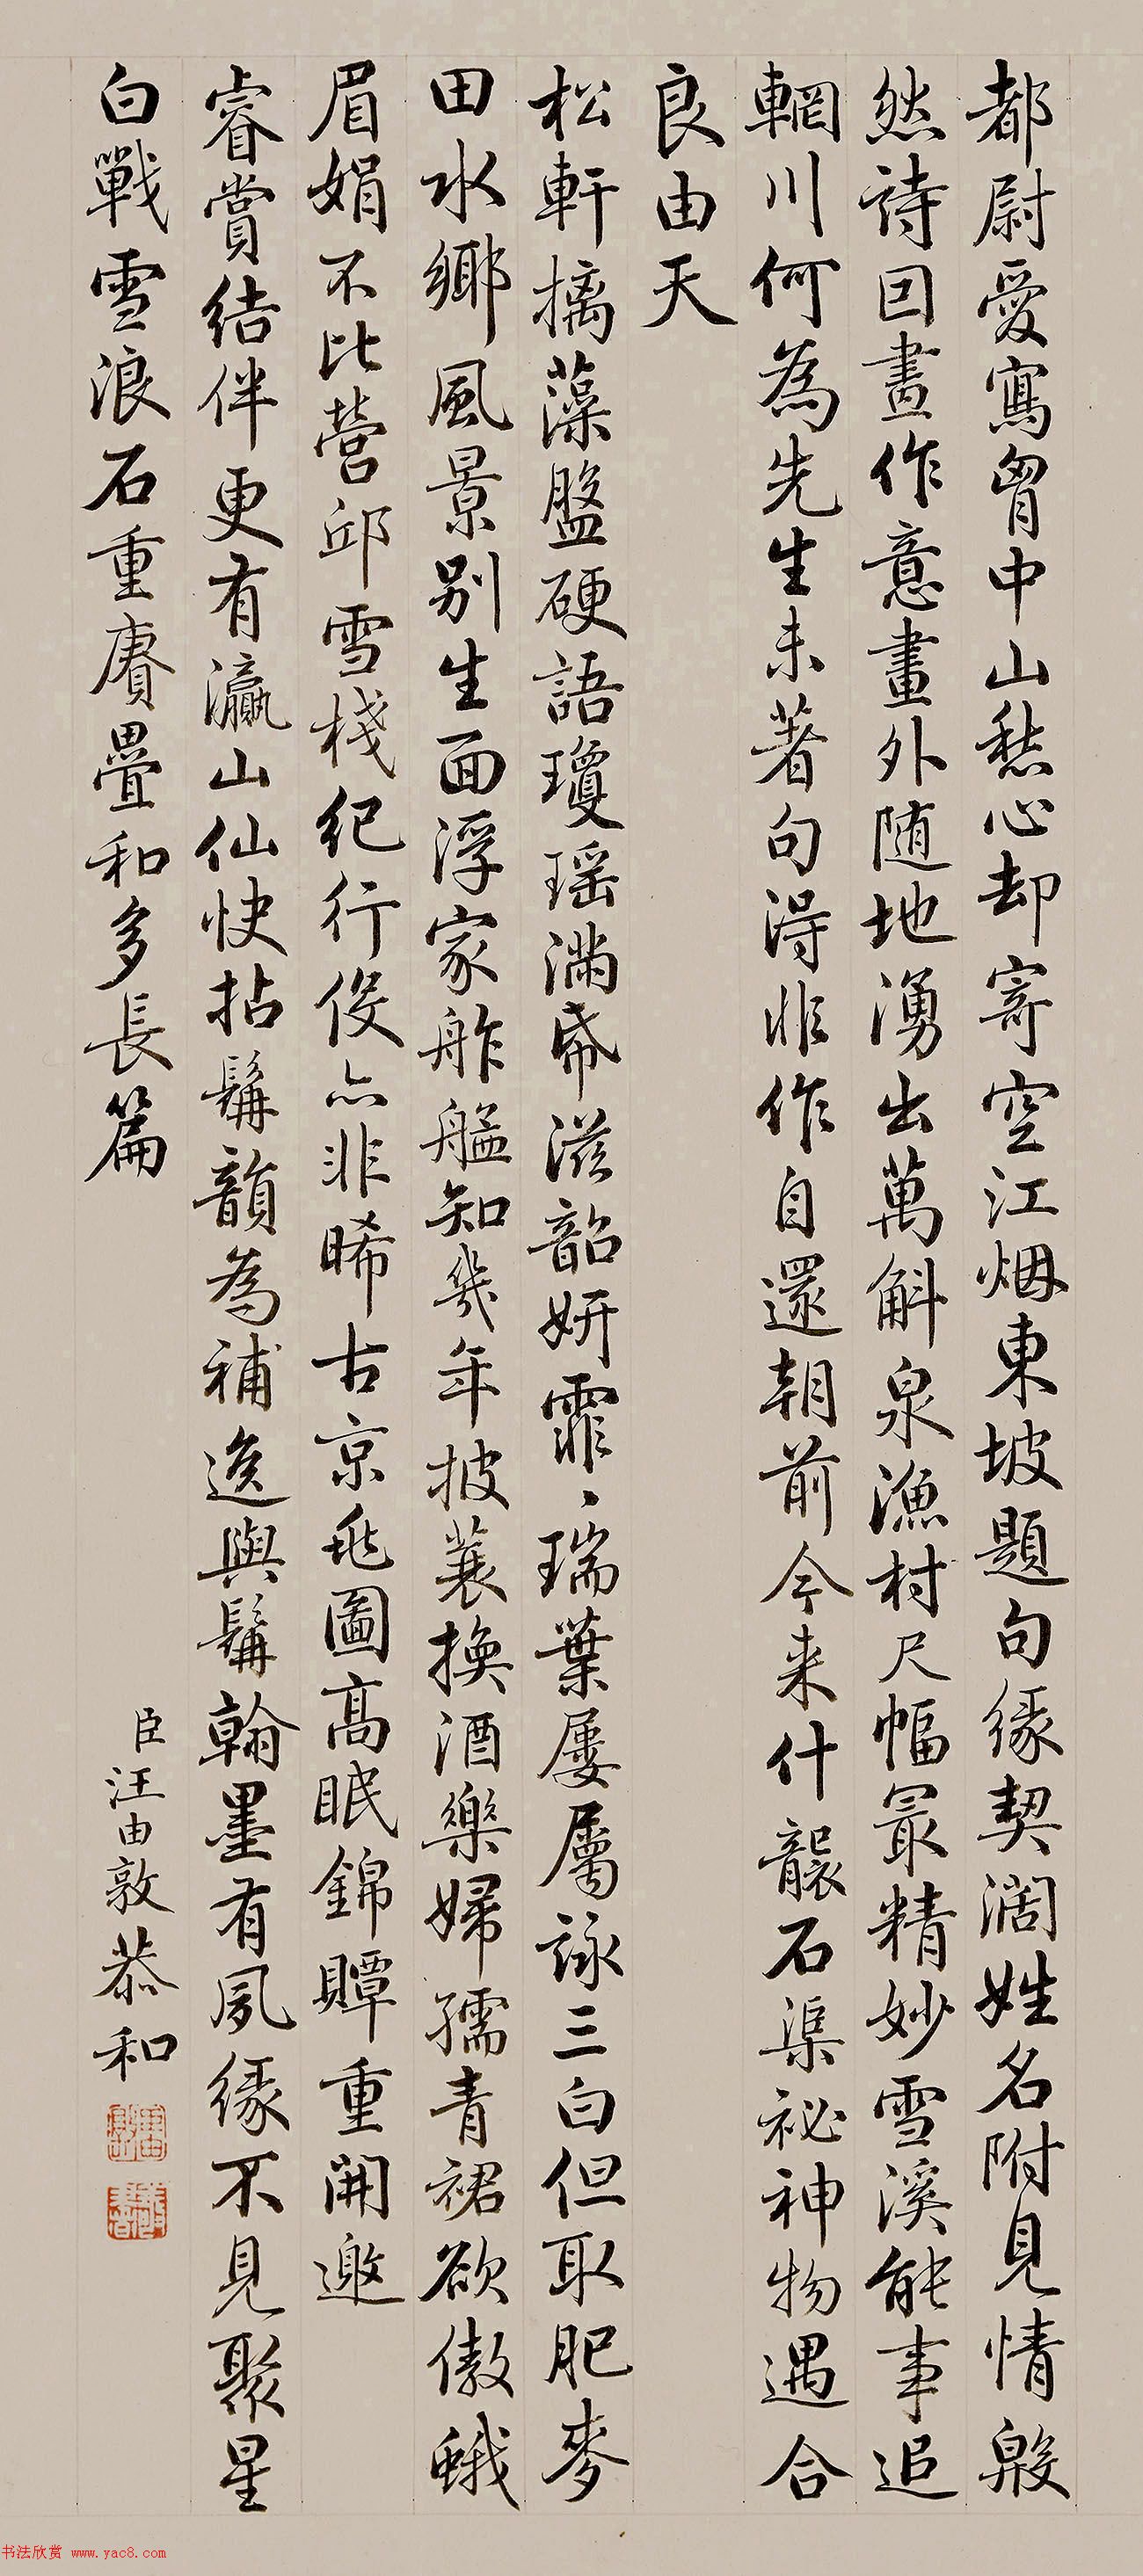 都尉愛寫胷中山愁心却寄空江烟東坡題句緣契濶姓名附見情殷
然詩回畫作意畫外随地湧出萬斛泉漁村尺幅最精妙雪溪能事追
輞川何為先生未著句得非作自還朝前今来什襲石渠祕神物遇合
良由天
松軒摛藻盤硬語瓊瑶滿帋滋韶妍霏、瑞葉屢屬詠三白但取肥麥
田水鄉風景別生面浮家舴艋知幾年披蓑換酒樂婦孺青裙欲傲蛾
眉娟不比營邱雪棧紀行役亦非晞古京兆圖高眠錦贉重開邀
睿賞結伴更有瀛山仙快拈髯韻為補逸與髯翰墨有夙緣不見聚星
白戰雪浪石重賡疊和多長篇
臣汪由敦恭和
书法欣赏 www.yac8.com